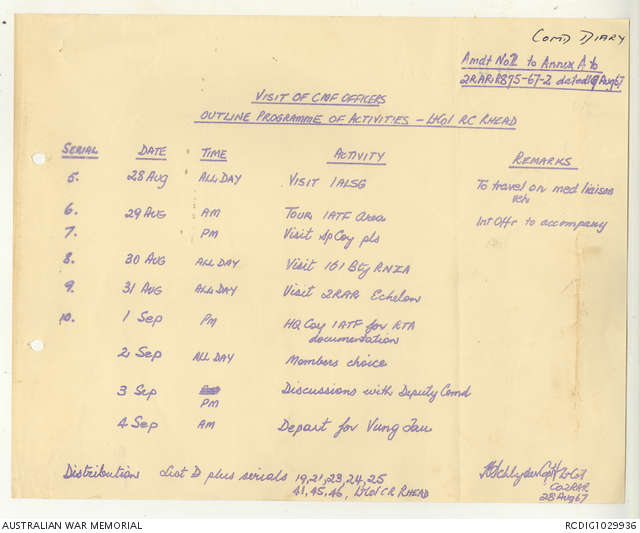 COMD DIARY
Amdt No 2 to Annex A to
2RAR R875-67-2 dated 19 Aug 67
VISIT OF CMF OFFICERS
OUTLINE PROGRAMME OF ACTIVITIES - Lt Col RC RHEAD
SERIAL DATE TIME ACTIVITY REMARKS
5. 28 Aug ALL DAY VISIT 1 ALSG To travel on med liaison
veh
6. 29 AUG AM TOUR 1ATF area Int Offr to accompany
7. PM Visit Sp Coy pls
8. 30 AUG ALL DAY Visit 161 Bty RNZA
9. 31 AUG ALL DAY Visit 2RAR Echelon
10. 1 Sep PM HQ Coy 1ATF for RTA
documentation
2 Sep ALL DAY Members choice
3 Sep PM Discussions with Deputy Comd
4 Sep AM Depart for Vung Tau
Distribution List D plus serials 19,21,23,24,25
41,45,46, Lt Col C R RHEAD
Lt Col
CO 2RAR
28 Aug 67
AUSTRALIAN WAR MEMORIAL RCDIG1029936